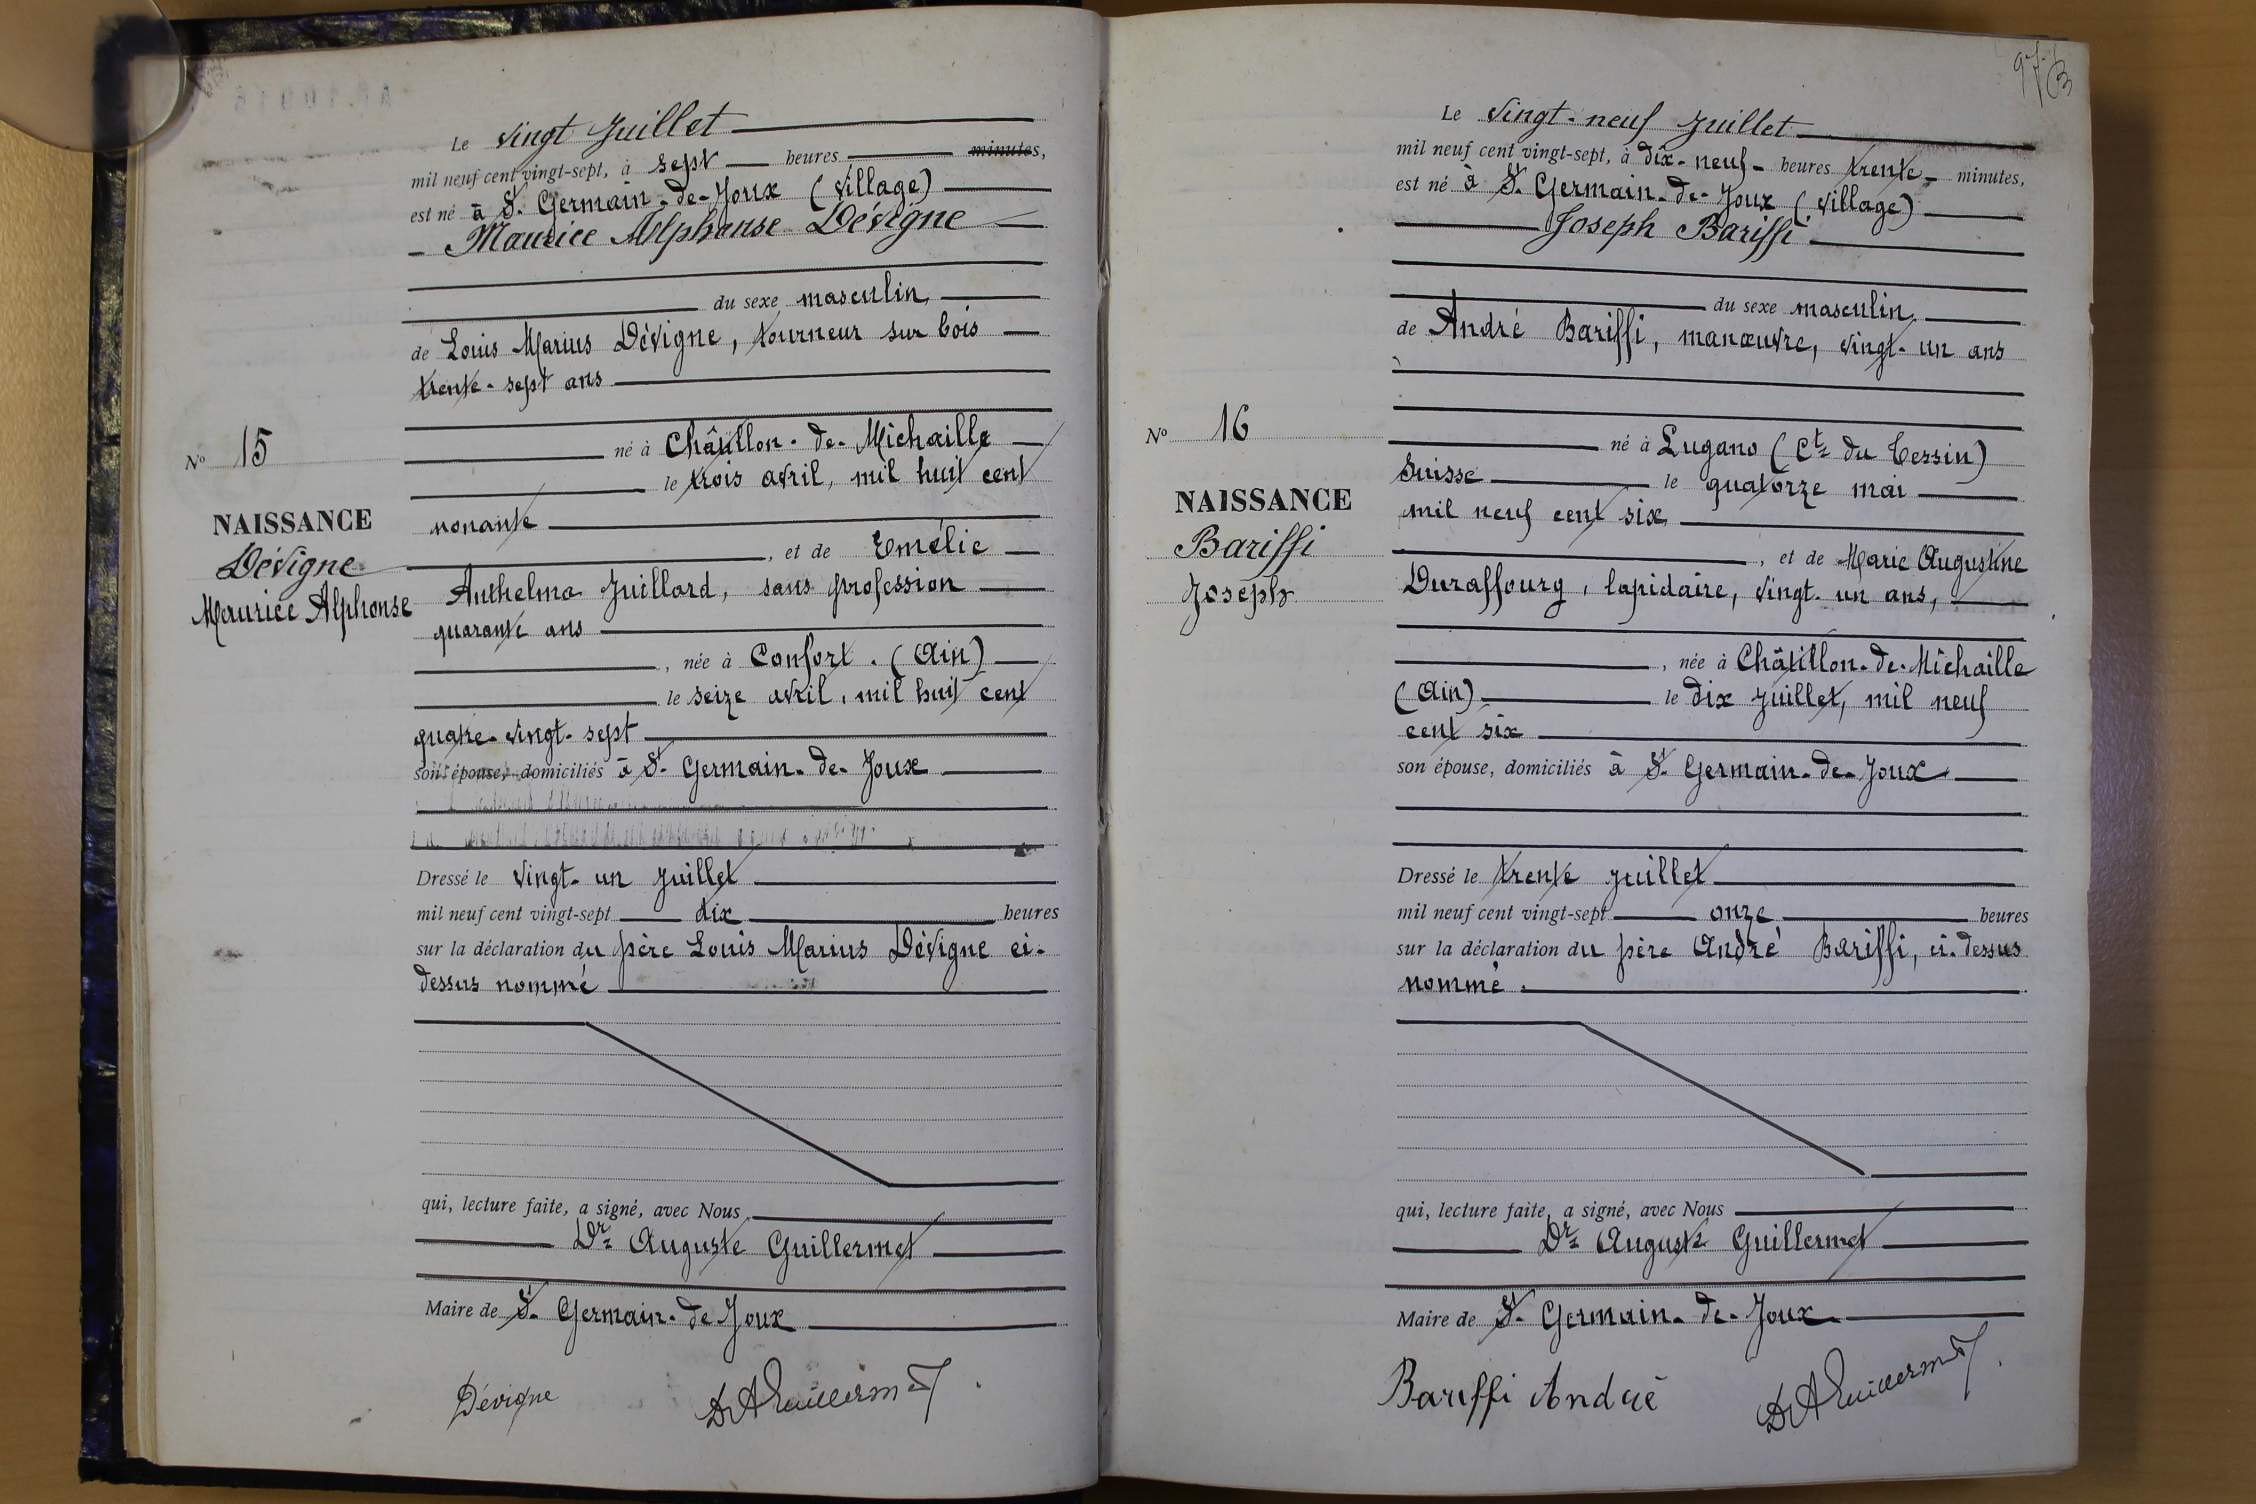 Le vingt Juillet
mil neuf cent vingt-sept, à sept heures minutes,
est né à St Germain-de-Joux (village)
Maurice Alphonse Dévigne
du sexe masculin,
de Louis Marius Dévigne, tourneur sur bois
trente-sept ans
né à Châtillon-de-Michaille
le trois avril, mil huit cent
nonante
, et de Emélie
Anthelma Juillard, sans profession
quarante ans
, née à Confort. (Ain)
le seize avril, mil huit cent
quatre-vingt-sept
son épouse, domiciliés à St Germain-de-Joux
Dressé le vingt-un Juillet
mil neuf cent vingt-sept dix heures
sur la déclaration du père Louis Marius Dévigne ci-
dessus nommé
qui, lecture faite, a signé, avec Nous
Dr Auguste Guillermet
Maire de St Germain-de Joux
Dévigne
Dr A Guillermet
No 15
NAISSANCE
Dévigne
Maurice Alphonse
Le vingt-neuf Juillet
mil neuf cent vingt-sept, à dix-neuf heures trente minutes,
est né à St Germain-de-Joux (village)
Joseph Bariffi
du sexe masculin
de André Bariffi, manœuvre, vingt-un ans
né à Lugano (Ct du Tessin)
Suisse le quatorze mai
mil neuf cent six
, et de Marie Augustine
Duraffourg, lapidaire, vingt-un ans,
, née à Châtillon-de-Michaille
(Ain) le dix Juillet, mil neuf
cent six
son épouse, domiciliés à St Germain-de-Joux
Dressé le trente juillet
mil neuf cent vingt-sept onze heures
sur la déclaration du père André Bariffi, ci-dessus
nommé.
qui, lecture faite, a signé, avec Nous
Dr Auguste Guillermet
Maire de St Germain-de-Joux
Bariffi André
Dr A Guillermet
No 16
NAISSANCE
Bariffi
Joseph